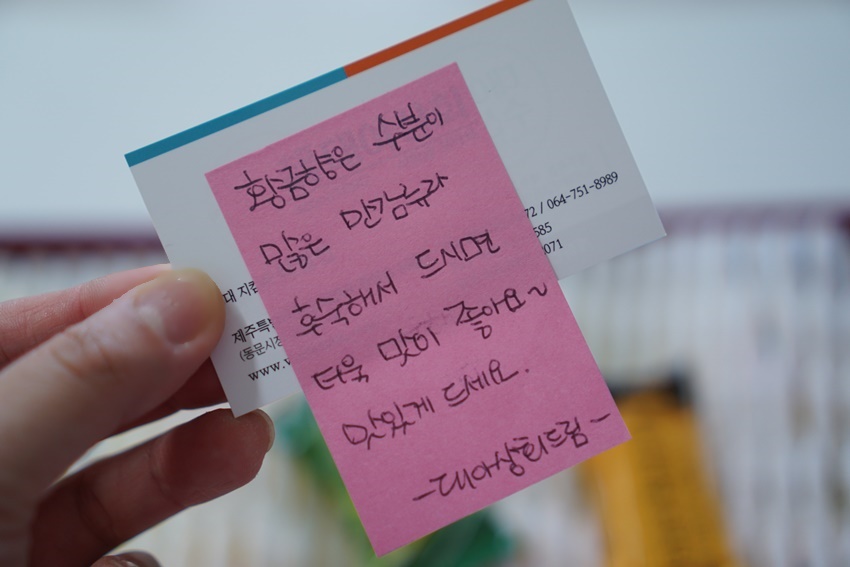 황금향은 수분이
많은 만감류라
후숙해서 드시면
더욱 맛이 좋아요~
맛있게 드세요.
-대아상회드림-
72 / 064-751-8989
585
071
대 지
제주특
(동문시장
www.